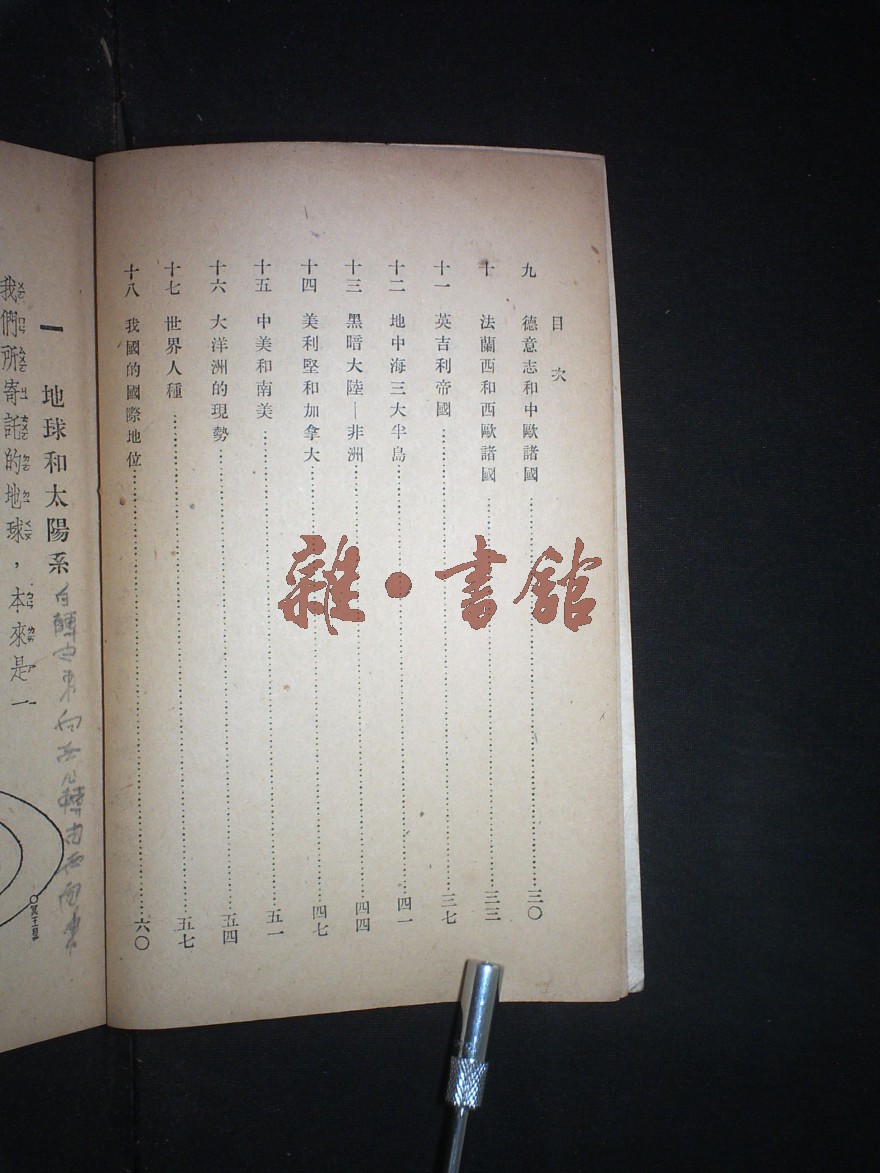 目次
九 德意志和中歐諸國……三〇
十 法蘭西和西歐諸國……三三
十一 英吉利帝國……三七
十二 地中海三大半島……四一
十三 黑暗大陸—非洲……四四
十四 美利堅和加拿大……四七
十五 中美和南美……五一
十六 大洋洲的現勢……五四
十七 世界人種……五七
十八 我國的國際地位……六〇
雜·書館
一 地球和太陽系
我們所寄託的地球,本來是一
冥王星